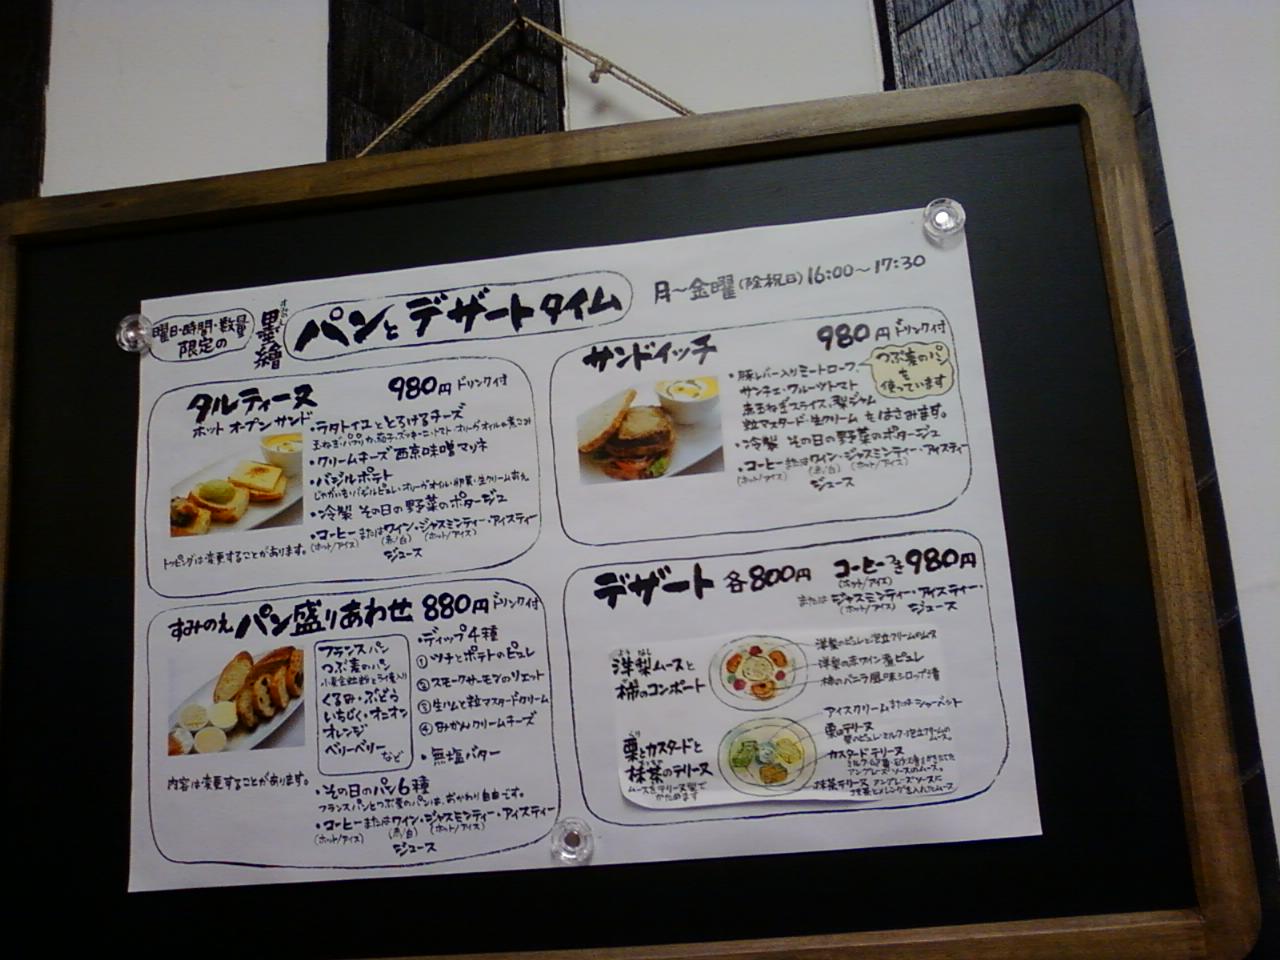 曜日・時間・数量
限定の
すみのえ
墨繪
パンとデザートタイム
月～金曜(除祝日)16:00～17:30
タルティーヌ
980円ドリンク付
ホットオープンサンド
・ラタトイユととろけるチーズ
玉ねぎ・パプリカ・茄子・ズッキーニ・トマト・オリーヴオイルの煮こみ
・クリームチーズ西京味噌マリネ
・バジルポテト
じゃがいも・バジルピュレ・オリーヴオイル・卵黄・生クリームあえ
・冷製 その日の野菜のポタージュ
・コーヒーまたはワイン・ジャスミンティー・アイスティー
(ホット/アイス) (赤/白) (ホット/アイス)
ジュース
トッピングは変更することがあります。
サンドイッチ
980円ドリンク付
つぶ麦のパン
を
使っています
・豚レバー入りミートローフ
サンチェ・フルーツトマト
赤玉ねぎスライス、梨ジャム
粒マスタード・生クリームをはさみます。
・冷製 その日の野菜のポタージュ
・コーヒーまたはワイン・ジャスミンティー・アイスティー
(ホット/アイス) (赤/白) (ホット/アイス)
ジュース
すみのえパン盛りあわせ 880円ドリンク付
フランスパン
つぶ麦のパン
くるみ・ぶどう
いちじく・オニオン
オレンジ
ベリーベリー
など
・ディップ4種
①ツナとポテトのピュレ
②スモークサーモンのリエット
③生ハムと粒マスタードクリーム
④みかんクリームチーズ
・無塩バター
内容は変更することがあります。
・その日のパン6種
フランスパンとつぶ麦のパンは、おかわり自由です。
・コーヒーまたはワイン・ジャスミンティー・アイスティー
(ホット/アイス) (赤/白) (ホット/アイス)
ジュース
デザート 各800円 コーヒーつき980円
(ホット/アイス)
またはジャスミンティー・アイスティー・
(ホット/アイス) ジュース
ようなし
洋梨ムースと
柿のコンポート
洋梨のピュレと泡立クリームのムース
洋梨の赤ワイン煮ピュレ
柿のバニラ風味シロップ漬
くり
栗とカスタードと
抹茶のテリーヌ
ムースをテリーヌ型で
かためます
アイスクリームまたはシャーベット
栗のテリーヌ
栗のピュレ・ミルク・泡立クリームの
ムース。
カスタードテリーヌ
アングレーズソースのムース。
抹茶テリーヌ アングレーズソースに